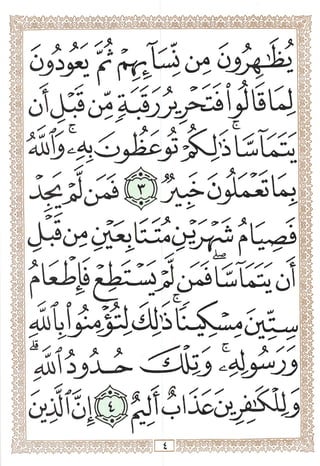 يُظَٰهِرُونَ مِن نِّسَآئِهِمْ ثُمَّ يَعُودُونَ
لِمَا قَالُوا۟ فَتَحْرِيرُ رَقَبَةٍ مِّن قَبْلِ أَن
يَتَمَآسَّا ۚ ذَٰلِكُمْ تُوعَظُونَ بِهِۦ ۚ وَٱللَّهُ
بِمَا تَعْمَلُونَ خَبِيرٌ ٣ فَمَن لَّمْ يَجِدْ
فَصِيَامُ شَهْرَيْنِ مُتَتَابِعَيْنِ مِن قَبْلِ
أَن يَتَمَآسَّا ۖ فَمَن لَّمْ يَسْتَطِعْ فَإِطْعَامُ
سِتِّينَ مِسْكِينًا ۚ ذَٰلِكَ لِتُؤْمِنُوا۟ بِٱللَّهِ
وَرَسُولِهِۦ ۚ وَتِلْكَ حُدُودُ ٱللَّهِ ۗ
وَلِلْكَٰفِرِينَ عَذَابٌ أَلِيمٌ ٤ إِنَّ ٱلَّذِينَ
٤